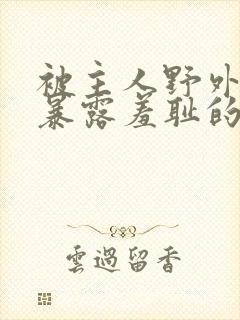 被主人野外
暴露羞耻的
雲過留香